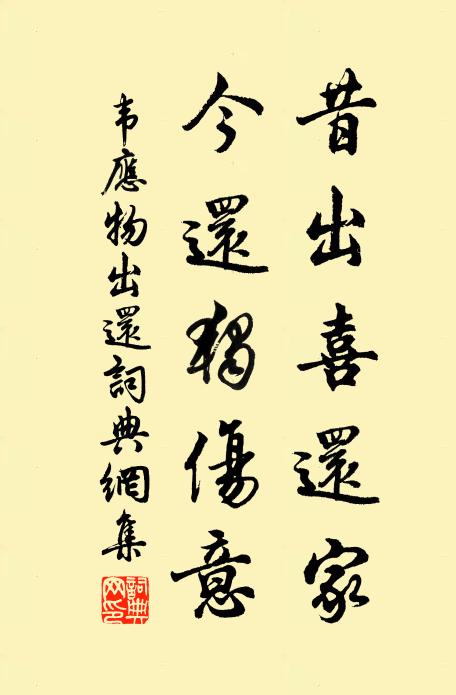 昔出喜還家
今還獨傷意
韦應物出還詞典網集
詞典网印